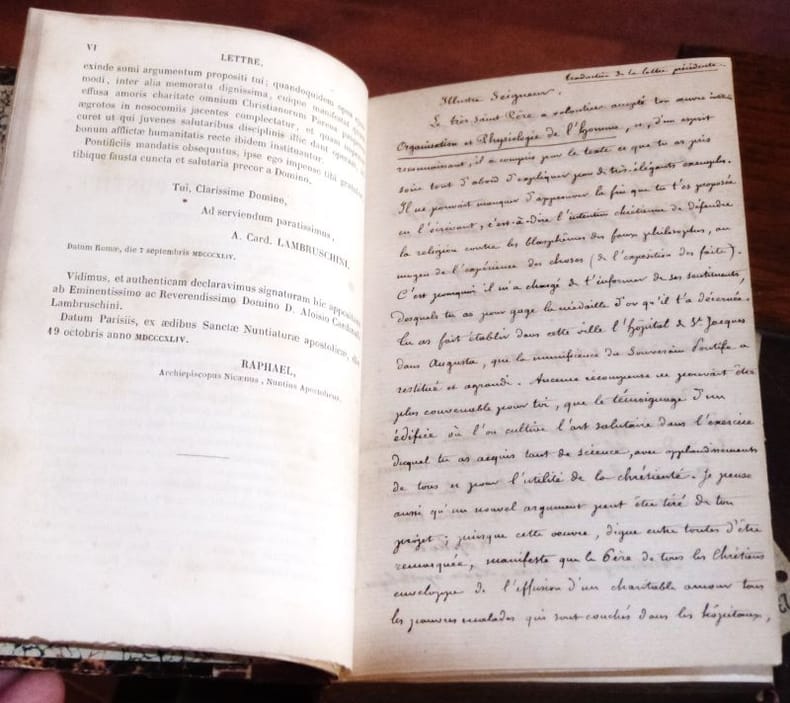 VI
LETTRE,
exinde somi argumentum propositi tui; quandoquidem opus ejus-
modi, inter alia memoratu dignissima, cuique manifestat quanta
effusa amoris charitate omnium Christianorum Parens pauperes
ægrotos in nosocomiis jacentes complectatur, et quam impense
curet ut qui juvenes salutaribus disciplinis illic dant operam, ad
bonum afflictæ humanitatis recte ibidem instituantur.
Pontificiis mandatis obsequutus, ipse ego impense tibi gratulor
tibique fausta cuncta et salutaria precor a Domino.
Tui, Clarissime Domine,
Ad serviendum paratissimus,
A. Card. LAMBRUSCHINI.
Datum Romæ, die 7 septembris MDCCCXLIV.
Vidimus, et authenticam declaravimus signaturam hic appositam
ab Eminentissimo ac Reverendissimo Domino D. Aloisio Cardinali
Lambruschini.
Datum Parisiis, ex ædibus Sanctæ Nuntiaturæ apostolicæ, die
19 octobris anno MDCCCXLIV.
RAPHAEL,
Archiepiscopus Nicænus, Nuntius Apostolicus.
traduction de la lettre précédente.
Illustre Seigneur.
Le très Saint Père a volontiers accepté ton œuvre
Organisation et Physiologie de l'homme, et, d'un esprit
reconnaissant, il a compris par le texte ce que tu as pris
soin tout d'abord d'expliquer par de très élégants exemples.
Il ne pouvait manquer d'approuver la fin que tu t'es proposée
en l'écrivant; c'est-à-dire l'intention chrétienne de défendre
la religion contre les blasphèmes des faux philosophes, au
moyen de l'expérience des choses (de l'exposition des faits).
C'est pourquoi il m'a chargé de t'informer de ses sentiments,
desquels tu as pour gage la médaille d'or qu'il t'a décernée.
Tu as fait établir dans cette ville l'hôpital de St Jacques
dans Augusta, que la munificence du Souverain Pontife a
restitué et agrandi. Aucune récompense ne pouvait être
plus convenable pour toi, que le témoignage d'un
édifice où l'on cultive l'art salutaire dans l'exercice
duquel tu as acquis tant de science, avec applaudissements
de tous et pour l'utilité de la chrétienté. Je pense
aussi qu'un nouvel argument peut être tiré de ton
projet; puisque cette œuvre, digne entre toutes d'être
remarquée, manifeste que le Père de tous les Chrétiens
enveloppe de l'effusion d'un charitable amour tous
les pauvres malades qui sont couchés dans les hôpitaux,